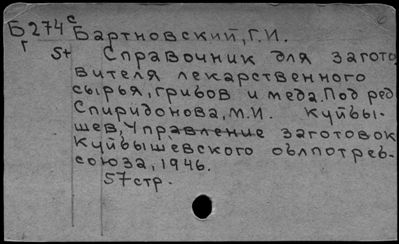 Б274с Бартновский, Г.И.
г 5+ Справочник для загото
вителя лекарственного
сырья, грибов и меда. Под ред
Спиридонова, М.И. Куйбы-
шев, Управление заготовок
Куйбышевского облпотреб-
союза, 1946.
57стр.